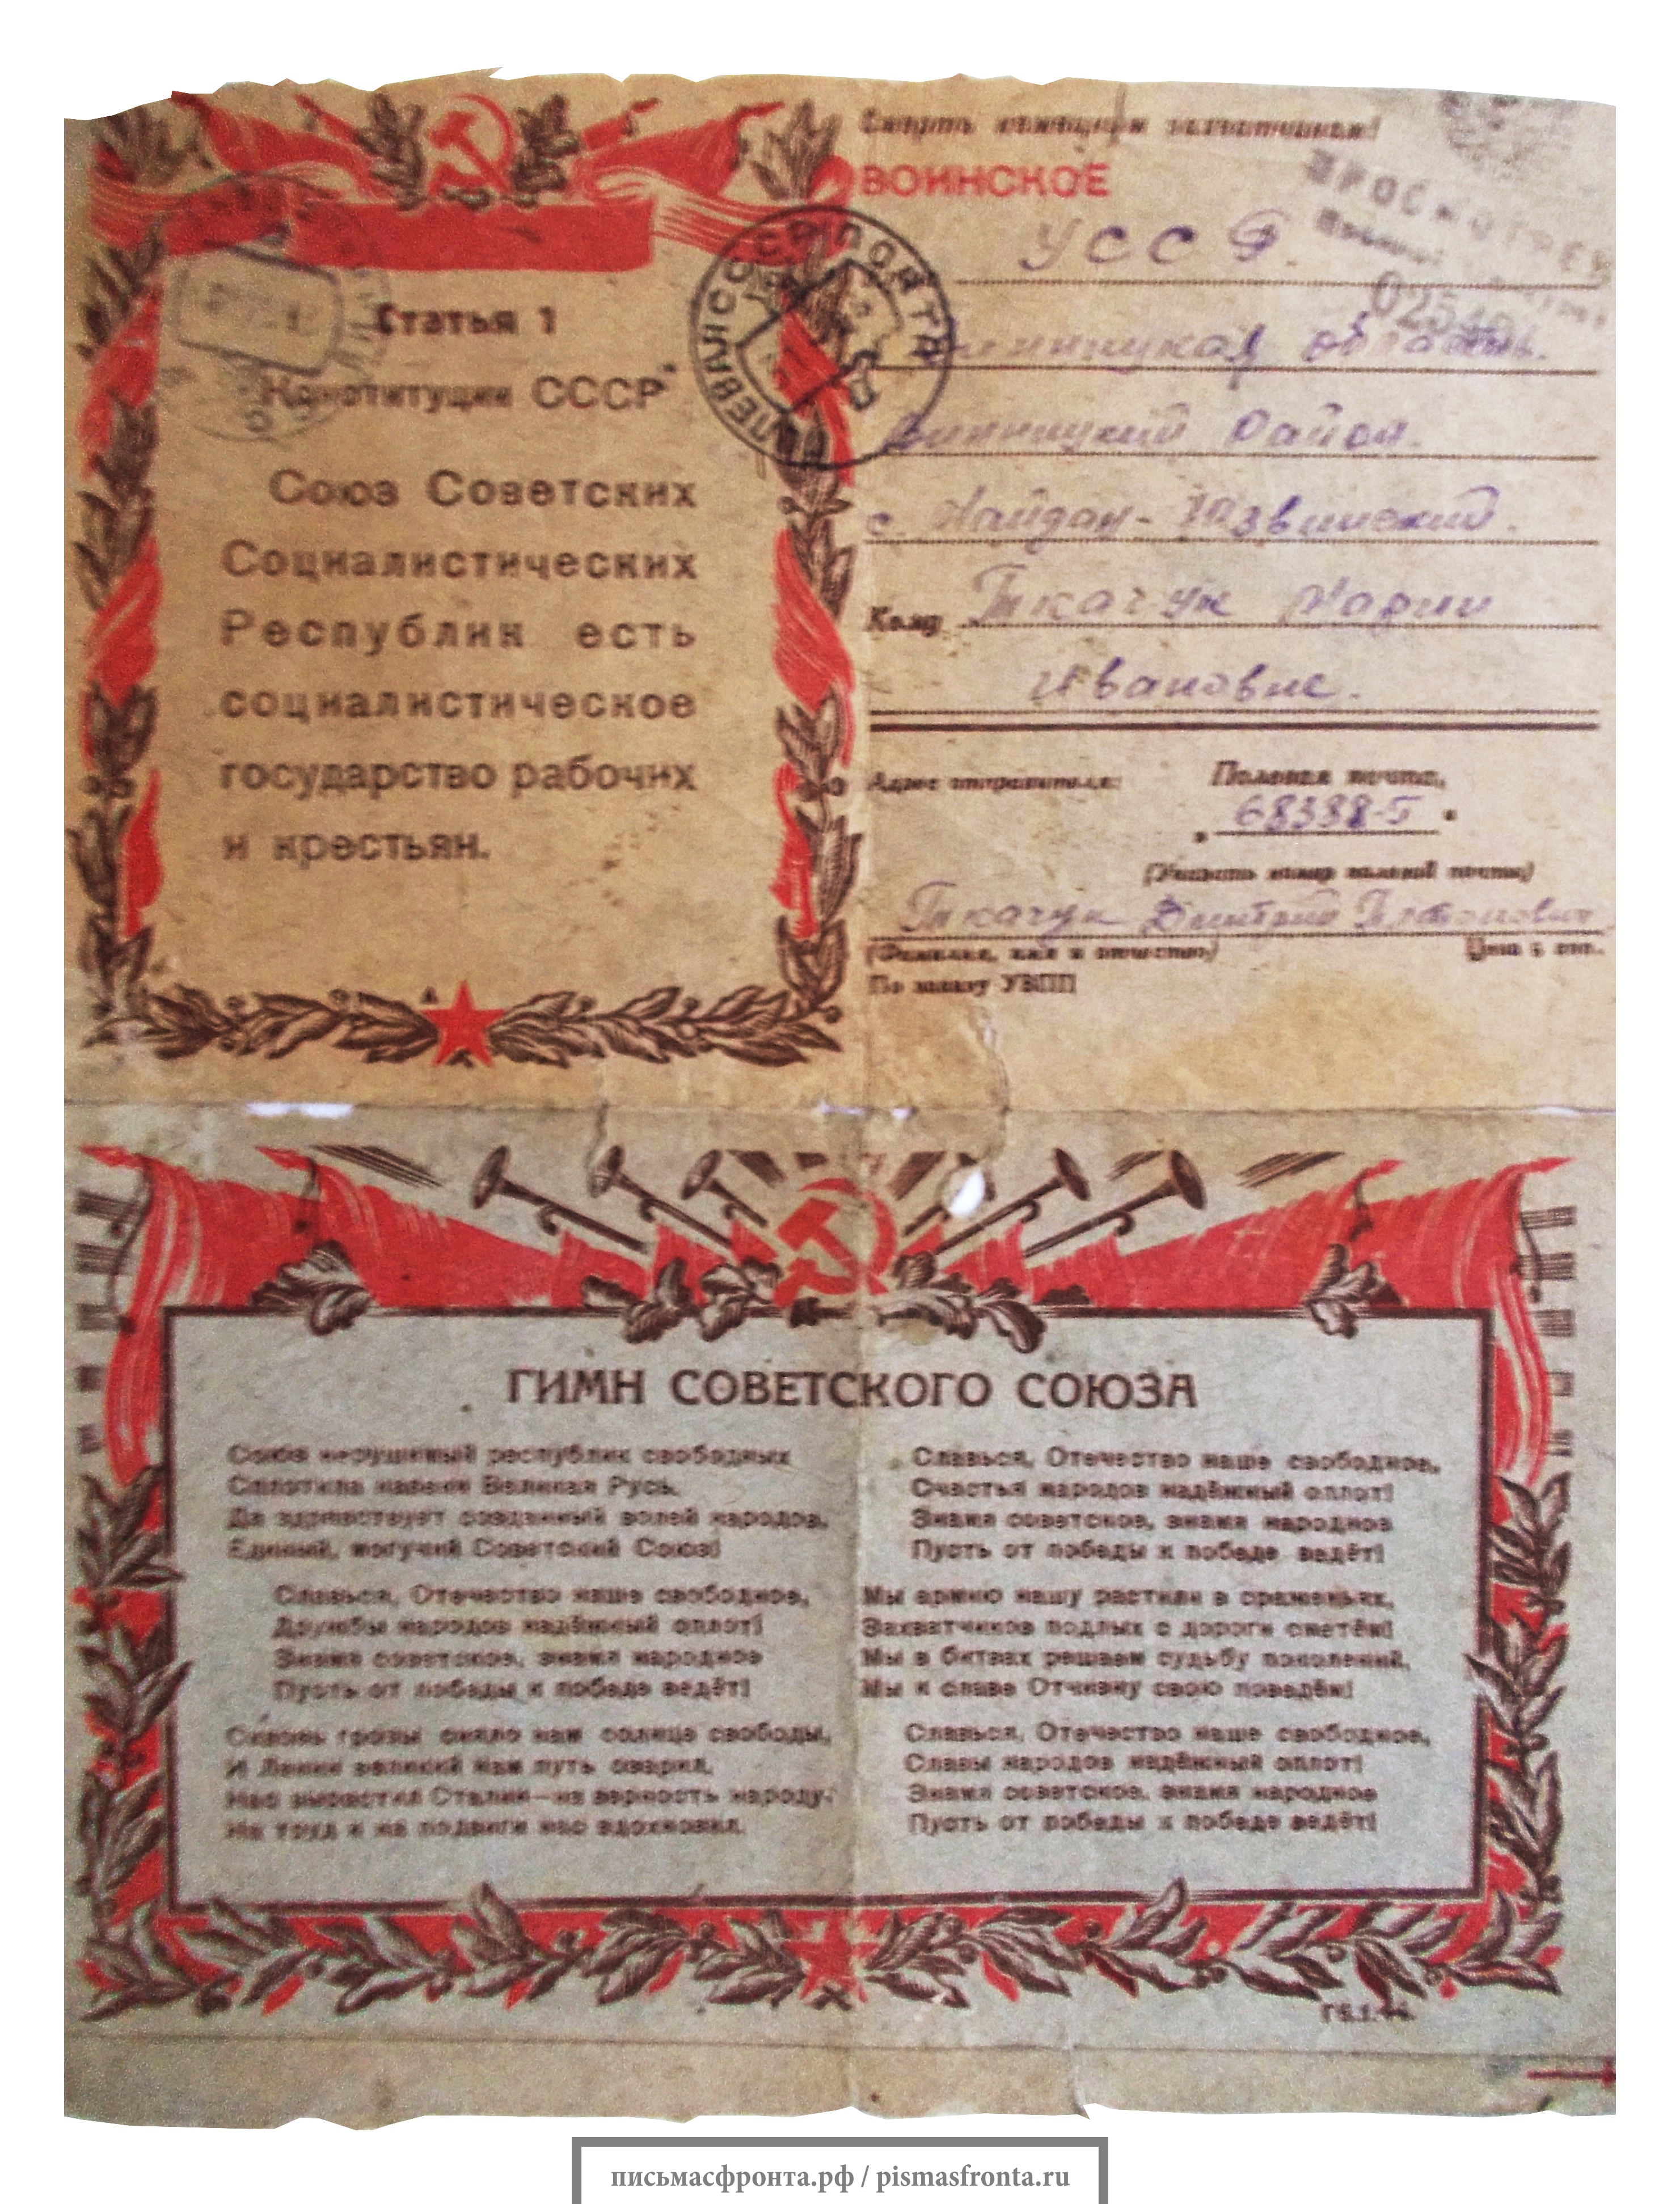 Статья 1
Конституции СССР
Союз Советских
Социалистических
Республик есть
социалистическое
государство рабочих
и крестьян.
Смерть немецким захватчикам!
ВОИНСКОЕ
УССР.
Винницкая область.
Винницкий район.
с. Майдан-Юзвинский.
Кому Ткачук Марии
Ивановне.
Адрес отправителя: Полевая почта,
68388-Г
(Указать номер полевой почты)
Ткачук Дмитрий Платонович
(Фамилия, имя и отчество) Цена
По заказу УВПП
СССР ПОЧТА
ПРОСМОТРЕНО
ГИМН СОВЕТСКОГО СОЮЗА
Союз нерушимый республик свободных
Сплотила навеки Великая Русь.
Да здравствует созданный волей народов,
Единый, могучий Советский Союз!
Славься, Отечество наше свободное,
Дружбы народов надёжный оплот!
Знамя советское, знамя народное
Пусть от победы к победе ведёт!
Сквозь грозы сияло нам солнце свободы,
И Ленин великий нам путь озарил,
Нас вырастил Сталин—на верность народу,
На труд и на подвиги нас вдохновил.
Славься, Отечество наше свободное,
Счастья народов надёжный оплот!
Знамя советское, знамя народное
Пусть от победы к победе ведёт!
Мы армию нашу растили в сраженьях,
Захватчиков подлых с дороги сметём!
Мы в битвах решаем судьбу поколений,
Мы к славе Отчизну свою поведём!
Славься, Отечество наше свободное,
Славы народов надёжный оплот!
Знамя советское, знамя народное
Пусть от победы к победе ведёт!
письмасфронта.рф / pismasfronta.ru